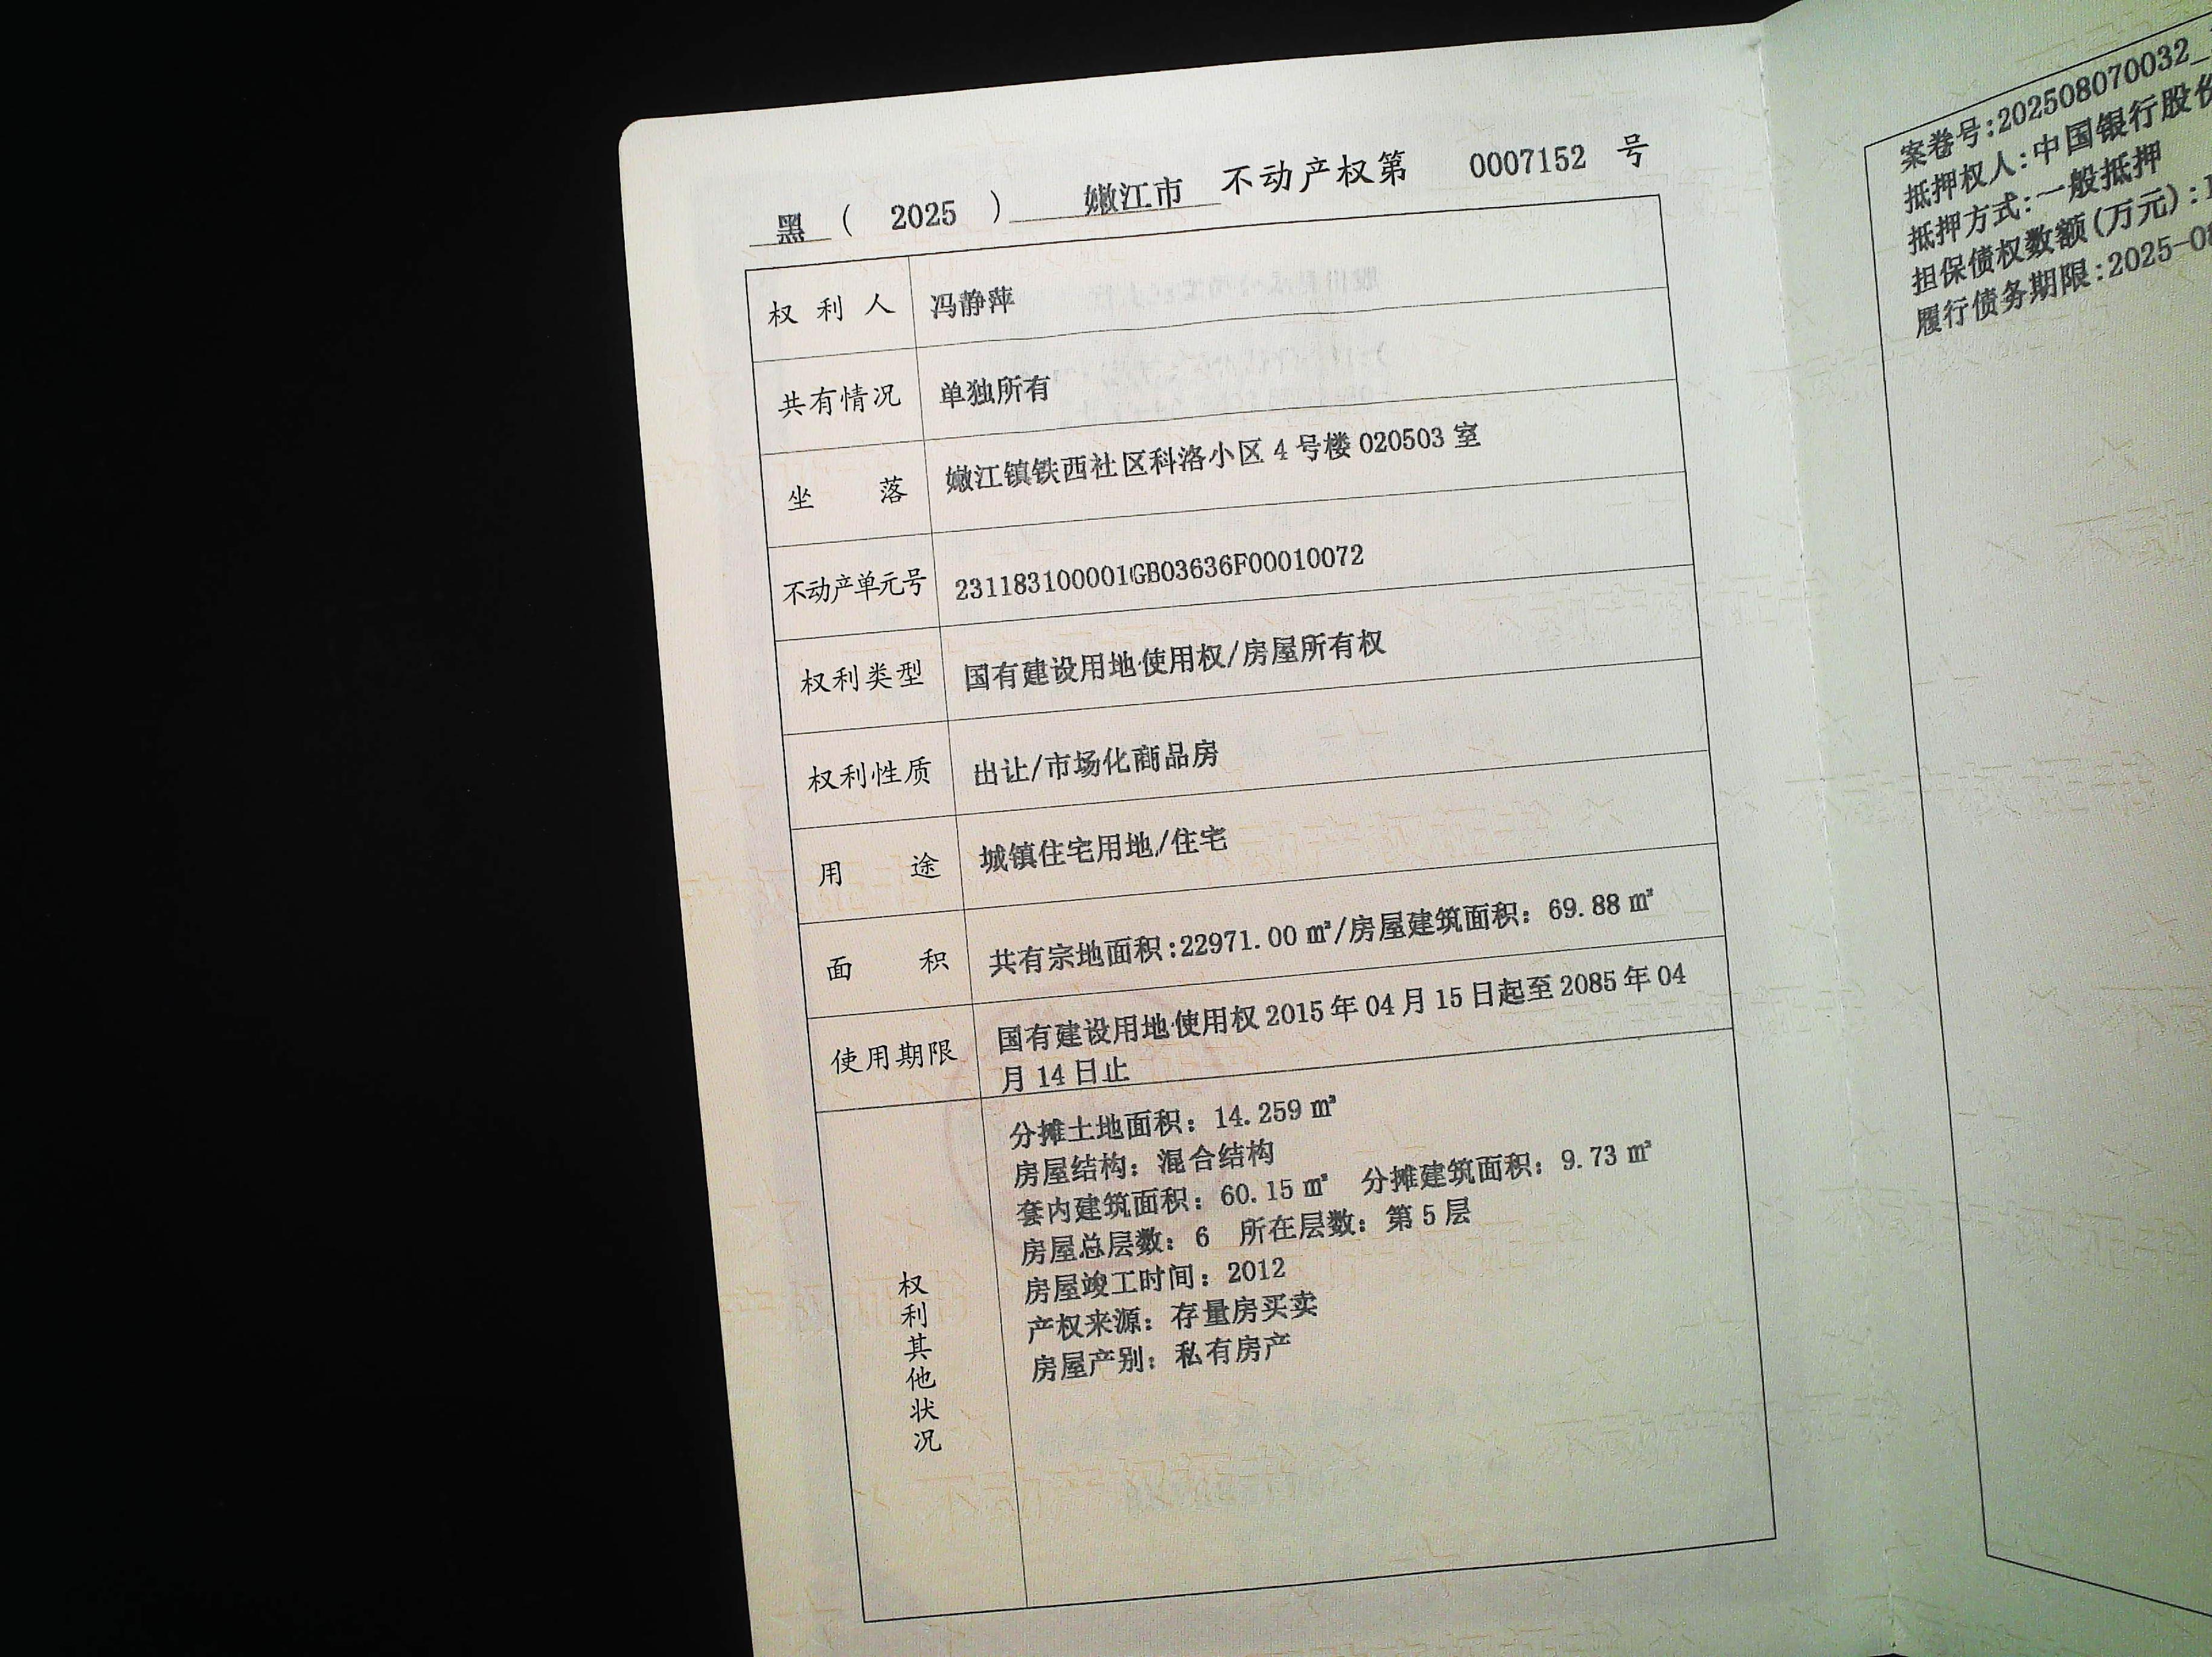 黑 ( 2025 ) 嫩江市 不动产权第 0007152 号
权利人 冯静萍
共有情况 单独所有
坐落 嫩江镇铁西社区科洛小区 4 号楼 020503 室
不动产单元号 231183100001GB03636F00010072
权利类型 国有建设用地使用权/房屋所有权
权利性质 出让/市场化商品房
用途 城镇住宅用地/住宅
面积 共有宗地面积:22971.00 ㎡/房屋建筑面积: 69.88 ㎡
使用期限 国有建设用地使用权 2015 年 04 月 15 日起至 2085 年 04
月 14 日止
权利其他状况
分摊土地面积: 14.259 ㎡
房屋结构: 混合结构
套内建筑面积: 60.15 ㎡ 分摊建筑面积: 9.73 ㎡
房屋总层数: 6 所在层数: 第 5 层
房屋竣工时间: 2012
产权来源: 存量房买卖
房屋产别: 私有房产
案卷号:202508070032_
抵押权人:中国银行股份
抵押方式:一般抵押
担保债权数额(万元):1
履行债务期限:2025-08